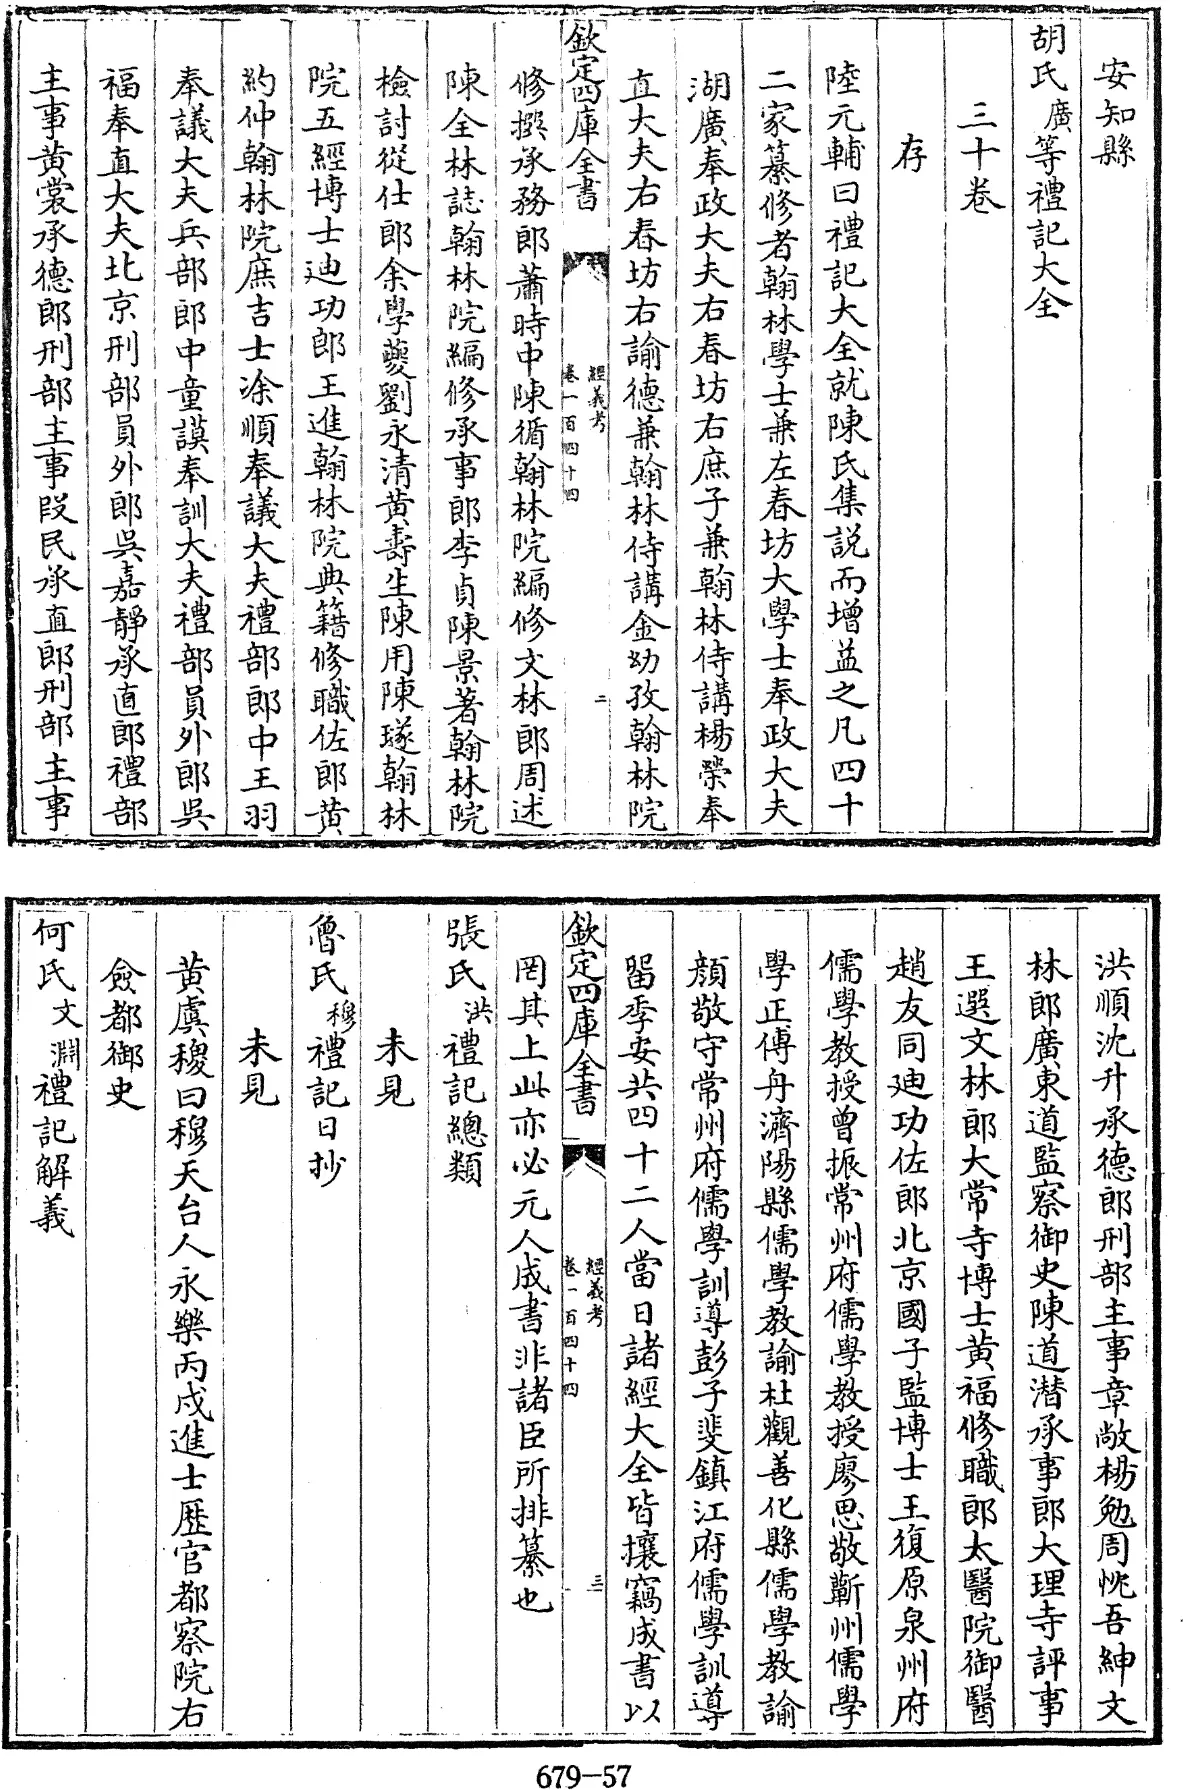 安知縣
胡氏廣等禮記大全
三十卷
存
陸元輔曰禮記大全就陳氏集説而增益之凡四十
二家纂修者翰林學士兼左春坊大學士奉政大夫
湖廣奉政大夫右春坊右庶子兼翰林侍講楊榮奉
直大夫右春坊右諭德兼翰林侍講金幼孜翰林院
欽定四庫全書
經義考
卷一百四十四
二
修撰承務郎蕭時中陳循翰林院編修文林郎周述
陳全林誌翰林院編修承事郎李貞陳景著翰林院
檢討從仕郎余學夔劉永清黄壽生陳用陳璲翰林
院五經博士迪功郎王進翰林院典籍修職佐郎黄
約仲翰林院庶吉士涂順奉議大夫禮部郎中王羽
奉議大夫兵部郎中童謨奉訓大夫禮部員外郎吳
福奉直大夫北京刑部員外郎吳嘉靜承直郎禮部
主事黄裳承德郎刑部主事段民承直郎刑部主事
洪順沈升承德郎刑部主事章敞楊勉周忱吾紳文
林郎廣東道監察御史陳道潛承事郎大理寺評事
王選文林郎大常寺博士黄福修職郎太醫院御醫
趙友同廸功佐郎北京國子監博士王復原泉州府
儒學教授曾振常州府儒學教授廖思敬蘄州儒學
學正傅舟濟陽縣儒學教諭杜觀善化縣儒學教諭
顔敬守常州府儒學訓導彭子斐鎮江府儒學訓導
留季安共四十二人當日諸經大全皆攘竊成書以
欽定四庫全書
經義考
卷一百四十四
三
罔其上此亦必元人成書非諸臣所排纂也
張氏洪禮記總類
未見
魯氏穆禮記日抄
未見
黄虞稷曰穆天台人永樂丙戌進士歷官都察院右
僉都御史
何氏文淵禮記解義
679-57